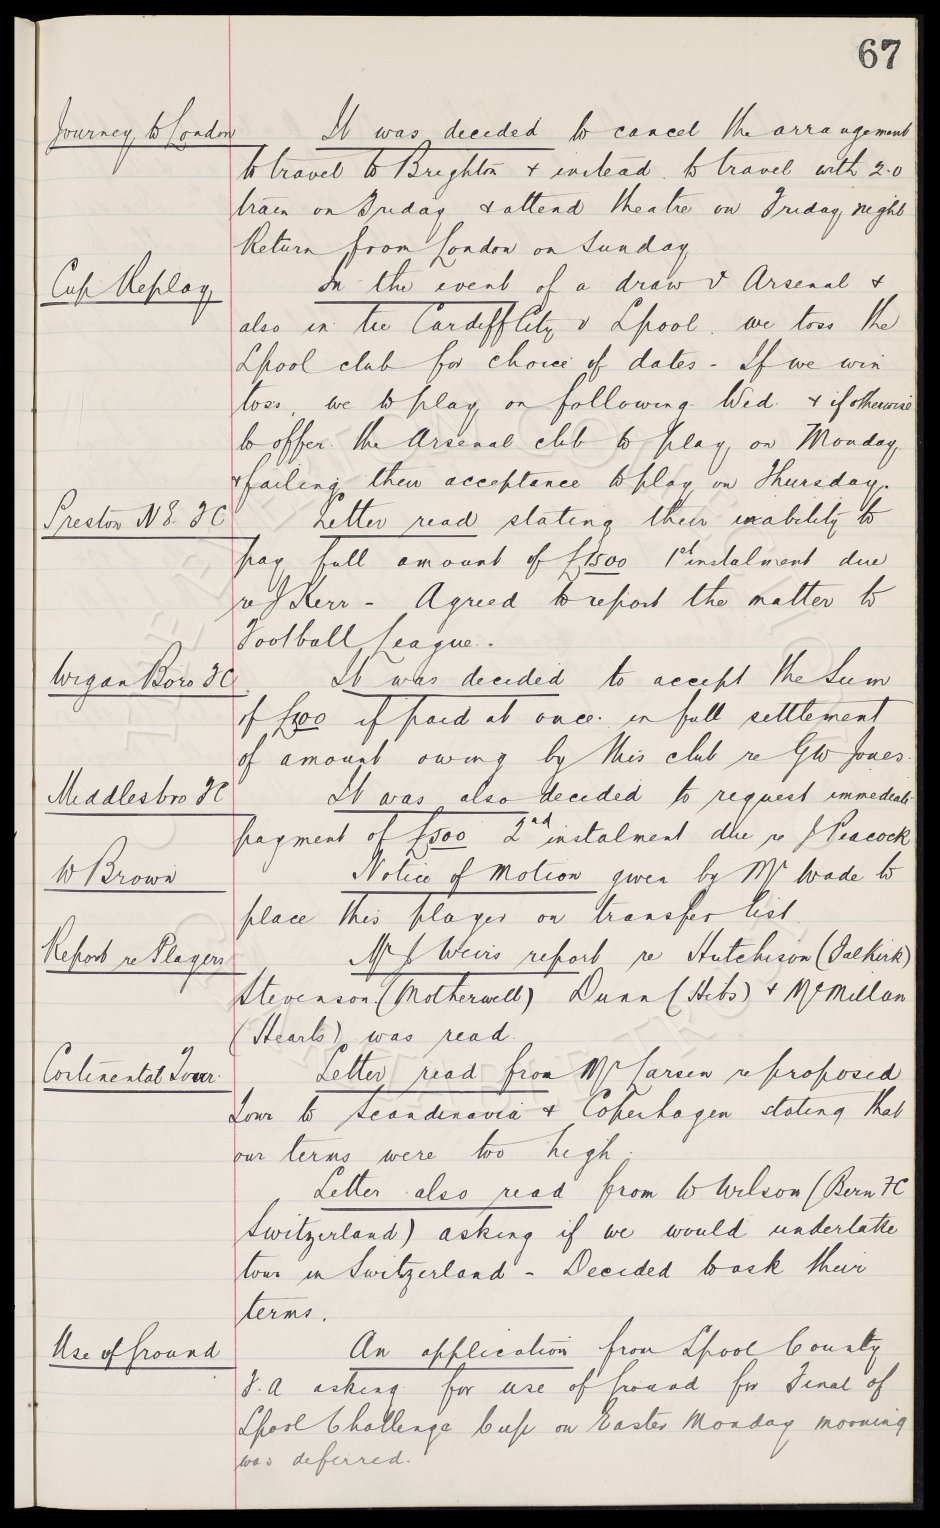 67
Journey to London It was decided to cancel the arrangement
to travel to Brighton & instead to travel with 2.0
train on Friday & attend theatre on Friday night
Return from London on Sunday
Cup Replay In the event of a draw v Arsenal &
also in tie Cardiff City v Lpool. we toss the
Lpool club for choice of dates - If we win
toss, we to play on following Wed. & if otherwise
to offer the Arsenal club to play on Monday
& failing their acceptance to play on Thursday.
Preston N E F C Letter read stating their inability to
pay full amount of £1500 1st instalment due
re J Kerr - Agreed to report the matter to
Football League.
Wigan Boro FC It was decided to accept the Sum
of £100 if paid at once. in full settlement
of amount owing by this club re GW Jones.
Middlesbro FC It was also decided to request immediate
payment of £500 2nd instalment due re J Peacock
W Brown Notice of Motion given by Mr Wade to
place this player on transfer list.
Report re Players Mr J Weirs report re Hutchison (Falkirk)
Stevenson (Motherwell) Dunn (Hibs) & McMillan
(Hearts) was read.
Continental Tour. Letter read from Mr Larsen re proposed
Tour to Scandinavia & Copenhagen stating that
our terms were too high.
Letter also read from W Wilson (Bern FC
Switzerland) asking if we would undertake
tour in Switzerland - Decided to ask their
terms.
Use of Ground An application from Lpool County
F.A asking for use of Ground for Final of
Lpool Challenge Cup on Easter Monday morning
was deferred.